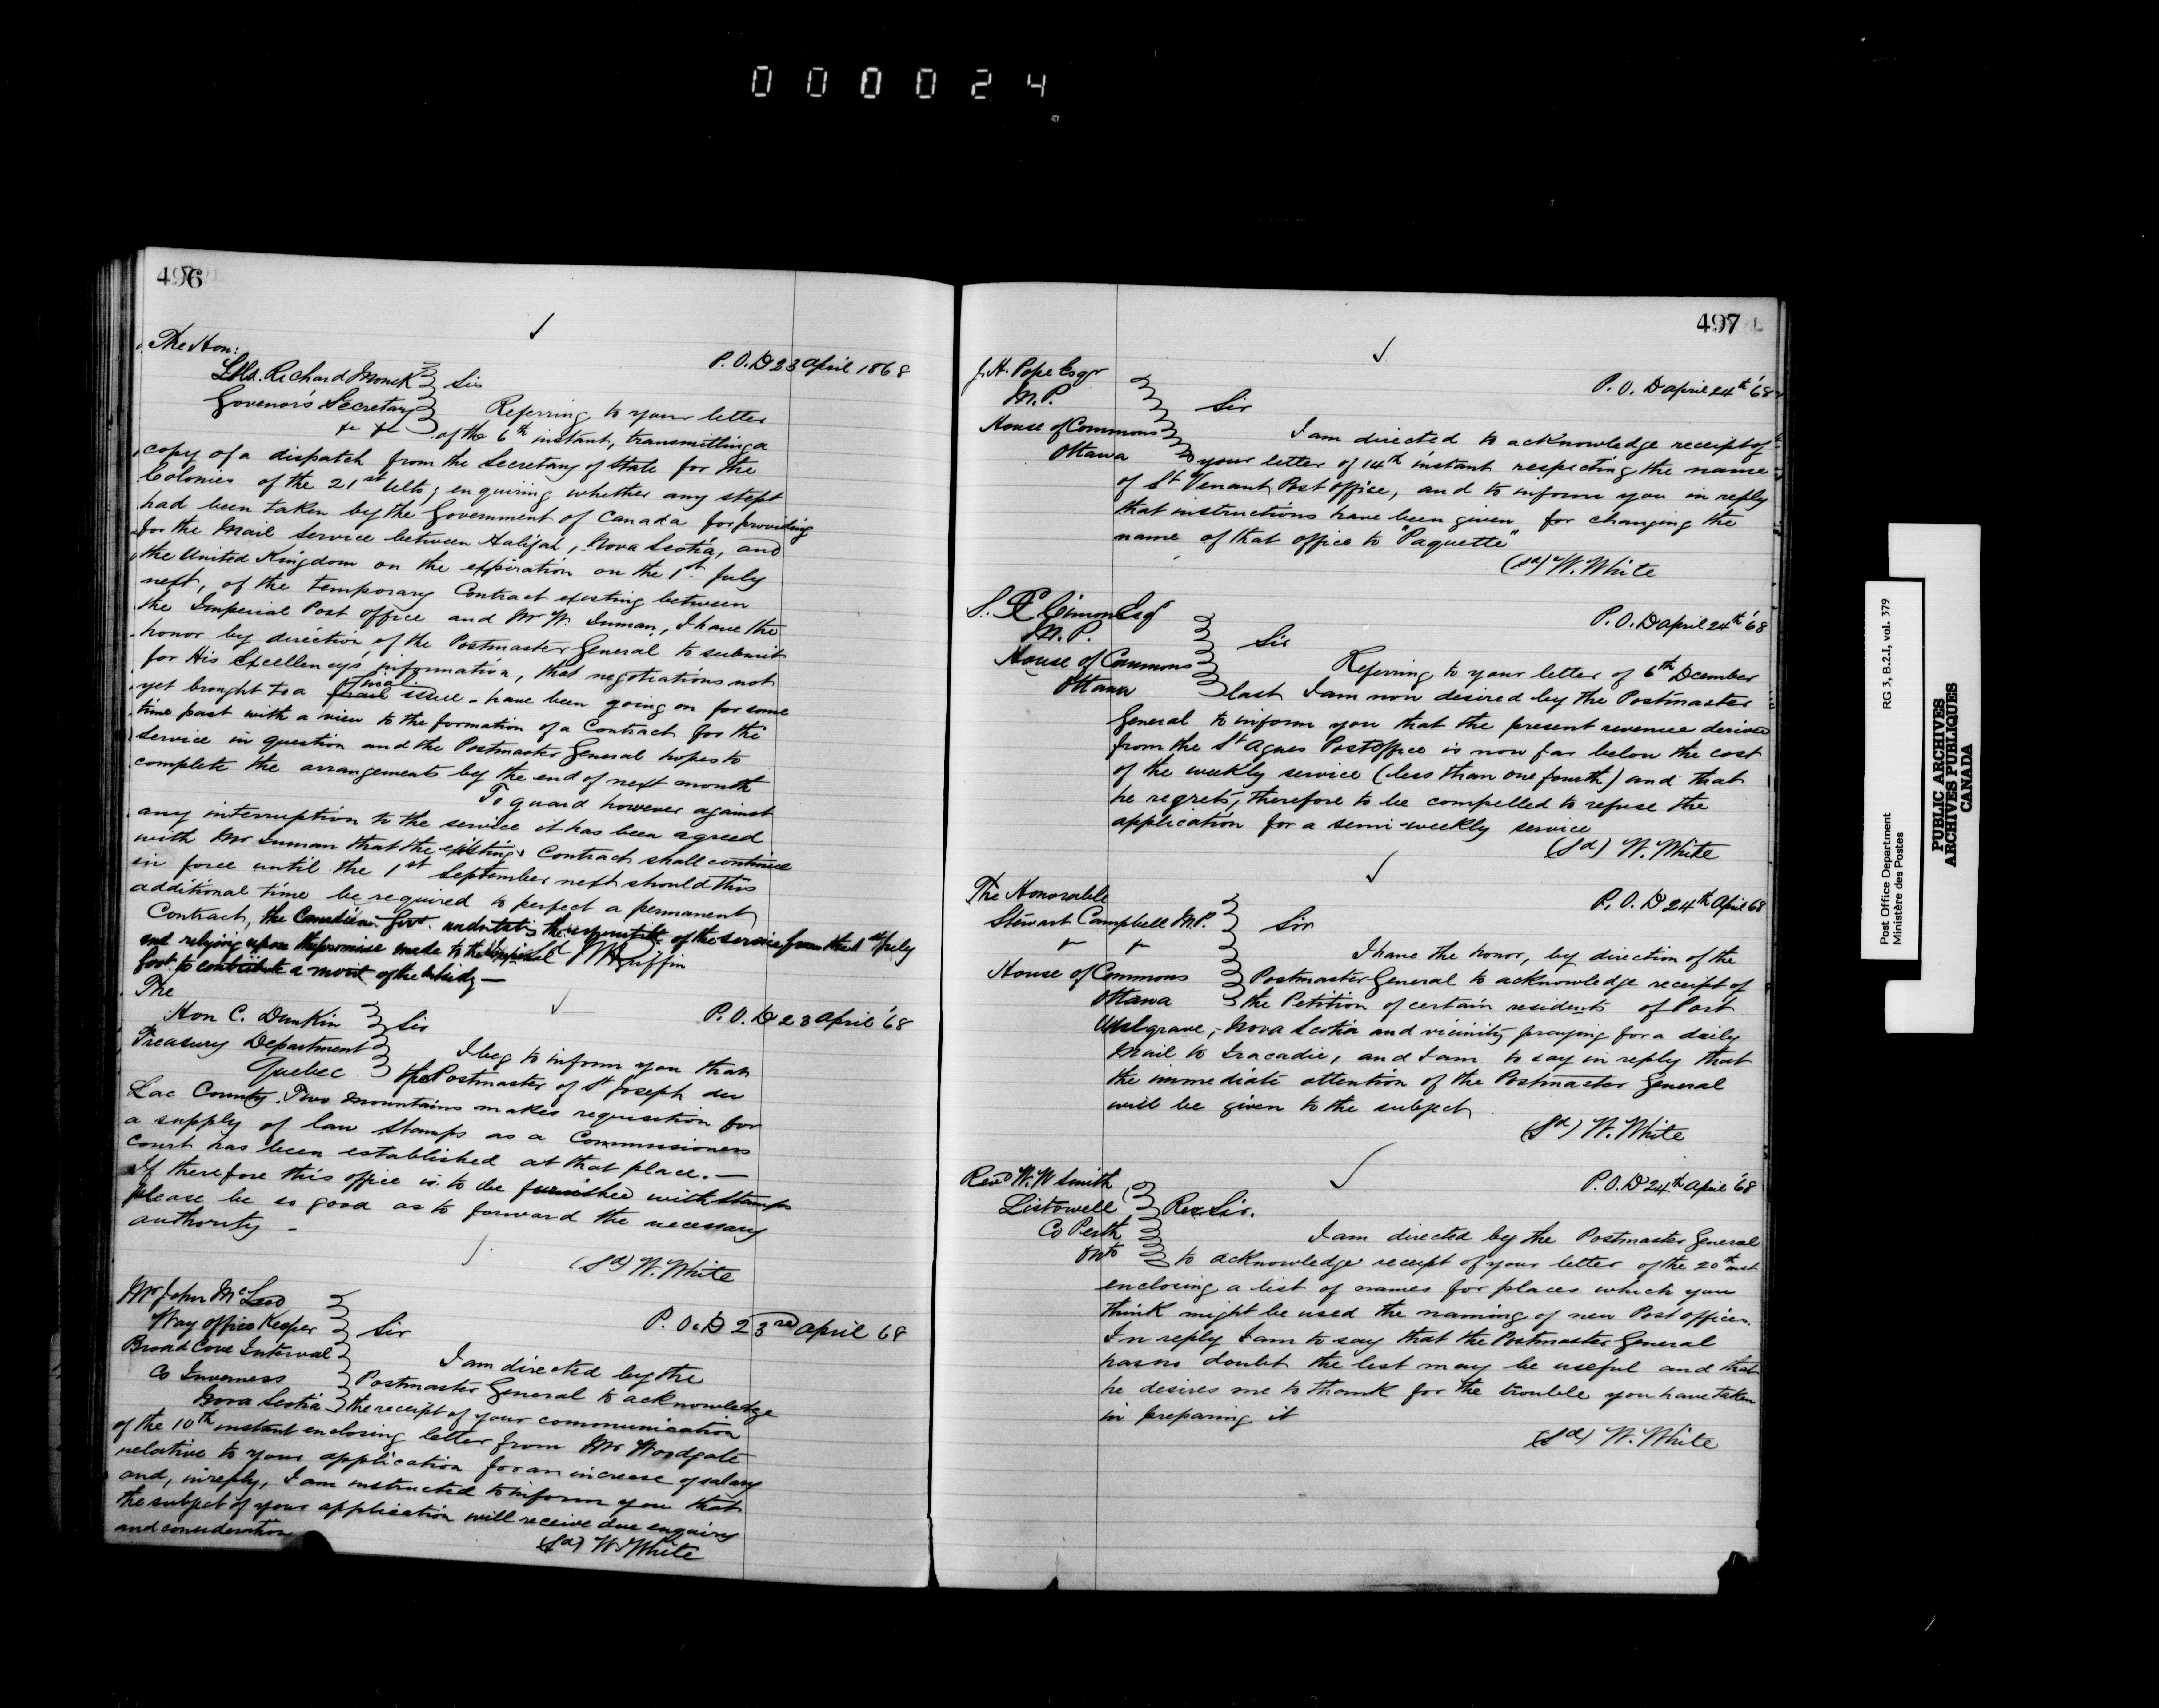 000024
496
The Hon:
Col. Richard Monck
Govenor's Secretary
&c &c
P.O.D 23 April 1868
Sir
Referring to your letter
of the 6th instant, transmitting a
copy of a dispatch from the Secretary of State for the
Colonies of the 21st Ulto; enquiring whether any stept
had been taken by the Government of Canada for providing
for the Mail Service between Halifax, Nova Scotia, and
the United Kingdom on the expiration on the 1st July
next, of the temporary Contract existing between
the Imperial Post office and Mr W. Inman, I have the
honor by direction of the Postmaster General to submit
for His Excellency's information, that negotiations not
yet brought to a final issue - have been going on for some
time past with a view to the formation of a Contract for the
service in question and the Postmaster General hopes to
complete the arrangements by the end of next month
To guard however against
any interruption to the service it has been agreed
with Mr Inman that the existing Contract shall continue
in force until the 1st September next should this
additional time be required to perfect a permanent
Contract, the Canadian Govt. undertaking the of the service from the 1st July
and relying upon the promise made to the Imperial
Govt. to contribute a of the subsidy —
Sd W H Griffin
The
Hon C. Dunkin
Treasury Department
Quebec
P.O.D 23 April '68
Sir
I beg to inform you that
the Postmaster of St Joseph du
Lac County Two Mountains makes requisition for
a supply of law stamps as a Commissioners
court has been established at that place. —
If therefore this office is to be furnished with stamps
please be so good as to forward the necessary
authority -
(Sd) W. White
Mr John McLeod
Way office Keeper
Broad Cove Interval
Co Inverness
Nova Scotia
P.O.D 23rd April 68
Sir
I am directed by the
Postmaster General to acknowledge
the receipt of your communication
of the 10th instant enclosing letter from Mr Woodgate
relative to your application for an increase of salary
and, in reply, I am instructed to inform you that
the subject of your application will receive due enquiry
and consideration
(Sd) W. White
497
J.H. Pope Esqr
M.P.
House of Commons
Ottawa
P.O.D April 24th '68
Sir
I am directed to acknowledge receipt of
your letter of 14th instant respecting the name
of St Venant Post office, and to inform you in reply
that instructions have been given for changing the
name of that office to "Paquette"
(Sd) W. White
S. X Cimon Esqr
M.P.
House of Commons
Ottawa
P.O.D April 24th '68
Sir
Referring to your letter of 6th Dcember
last I am now desired by the Postmaster
General to inform you that the present revenue derived
from the St Agnes Post office is now far below the cost
of the weekly service (less than one fourth) and that
he regrets, therefore to be compelled to refuse the
application for a semi-weekly service
(Sd) W. White
The Honorable
Stewart Campbell M.P.
House of Commons
Ottawa
P.O.D 24th April 68
Sir
I have the honor, by direction of the
Postmaster General to acknowledge receipt of
the Petition of certain residents of Port
Mulgrave, Nova Scotia and vicinity praying for a daily
Mail to Tracadie, and I am to say in reply that
the immediate attention of the Postmaster General
will be given to the subject
(Sd) W. White
Revd W. W Smith
Listowell
Co Perth
Onto
P.O.D 24th April '68
Rev Sir.
I am directed by the Postmaster General
to acknowledge receipt of your letter of the 20th inst
enclosing a list of names for places which you
think might be used the naming of new Post offices.
In reply I am to say that the Postmaster General
has no doubt the list may be useful and that
he desires me to thank for the trouble you have taken
in preparing it
(Sd) W. White
Post Office Department
Ministère des Postes
RG 3, B.2.I, vol. 379
PUBLIC ARCHIVES
ARCHIVES PUBLIQUES
CANADA